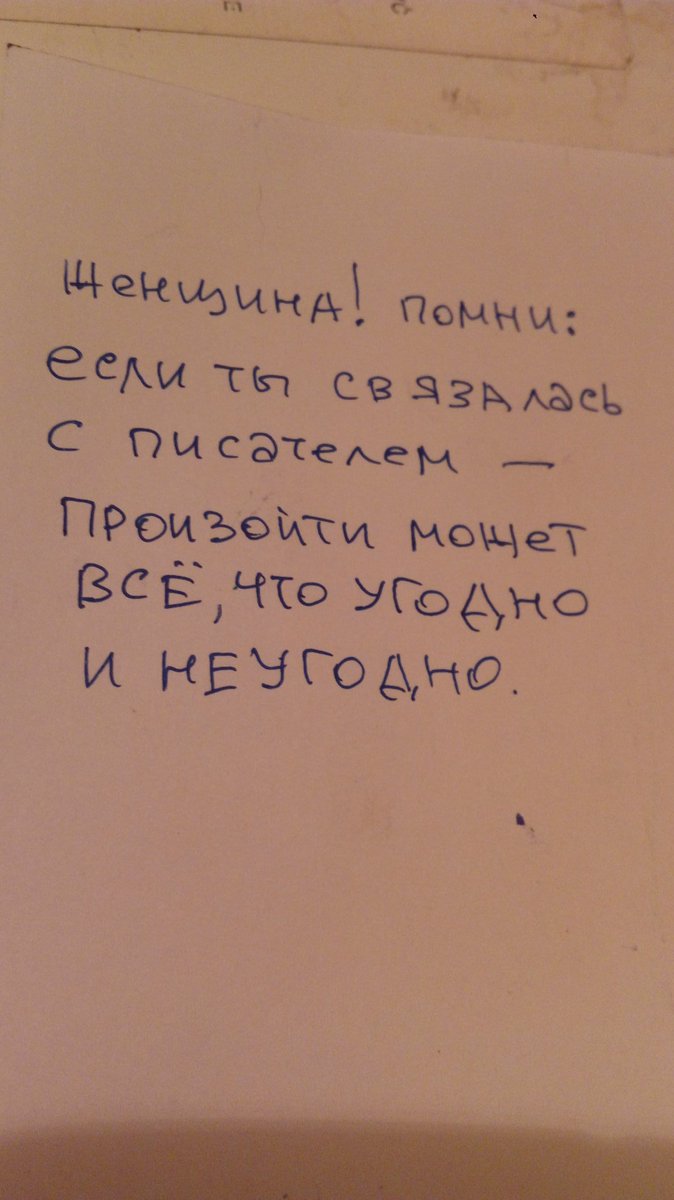 Женщина! помни:
если ты связалась
с писателем —
произойти может
ВСЁ, что угодно
и НЕугодно.